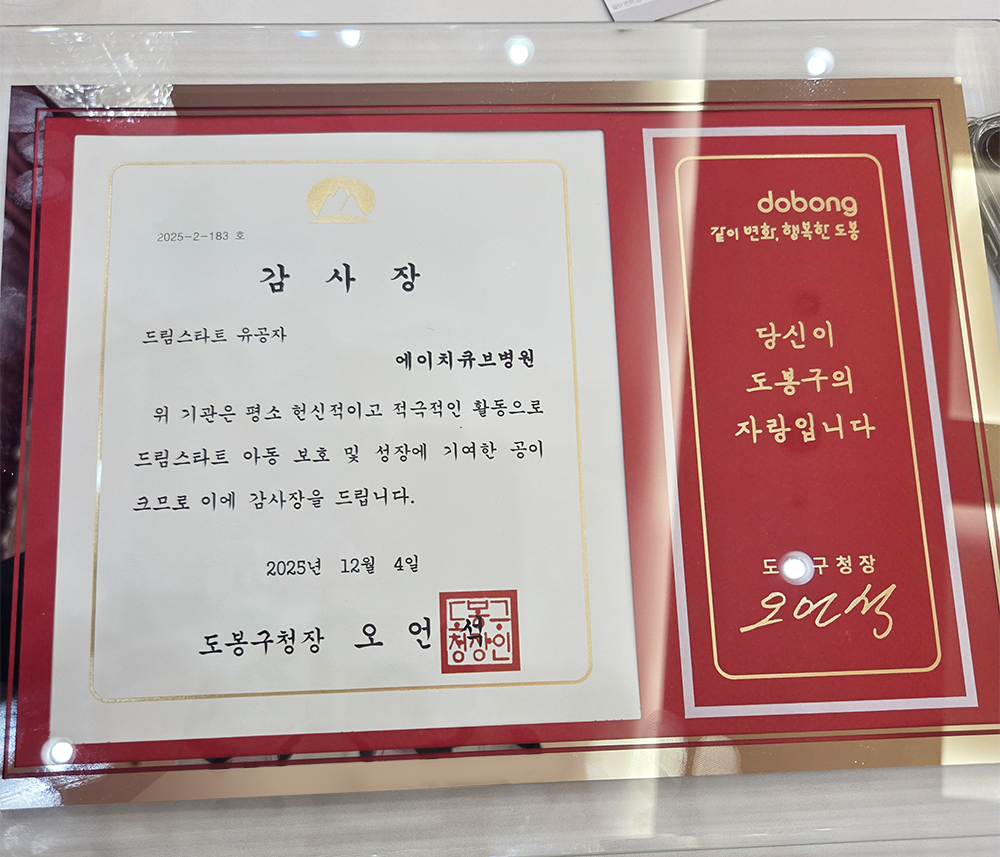 2025-2-183 호
감 사 장
드림스타트 유공자
에이치큐브병원
위 기관은 평소 헌신적이고 적극적인 활동으로
드림스타트 아동 보호 및 성장에 기여한 공이
크므로 이에 감사장을 드립니다.
2025년 12월 4일
도봉구청장 오 언 석
도봉구
청장인
dobong
같이 변화, 행복한 도봉
당신이
도봉구의
자랑입니다
도봉구청장
오언석